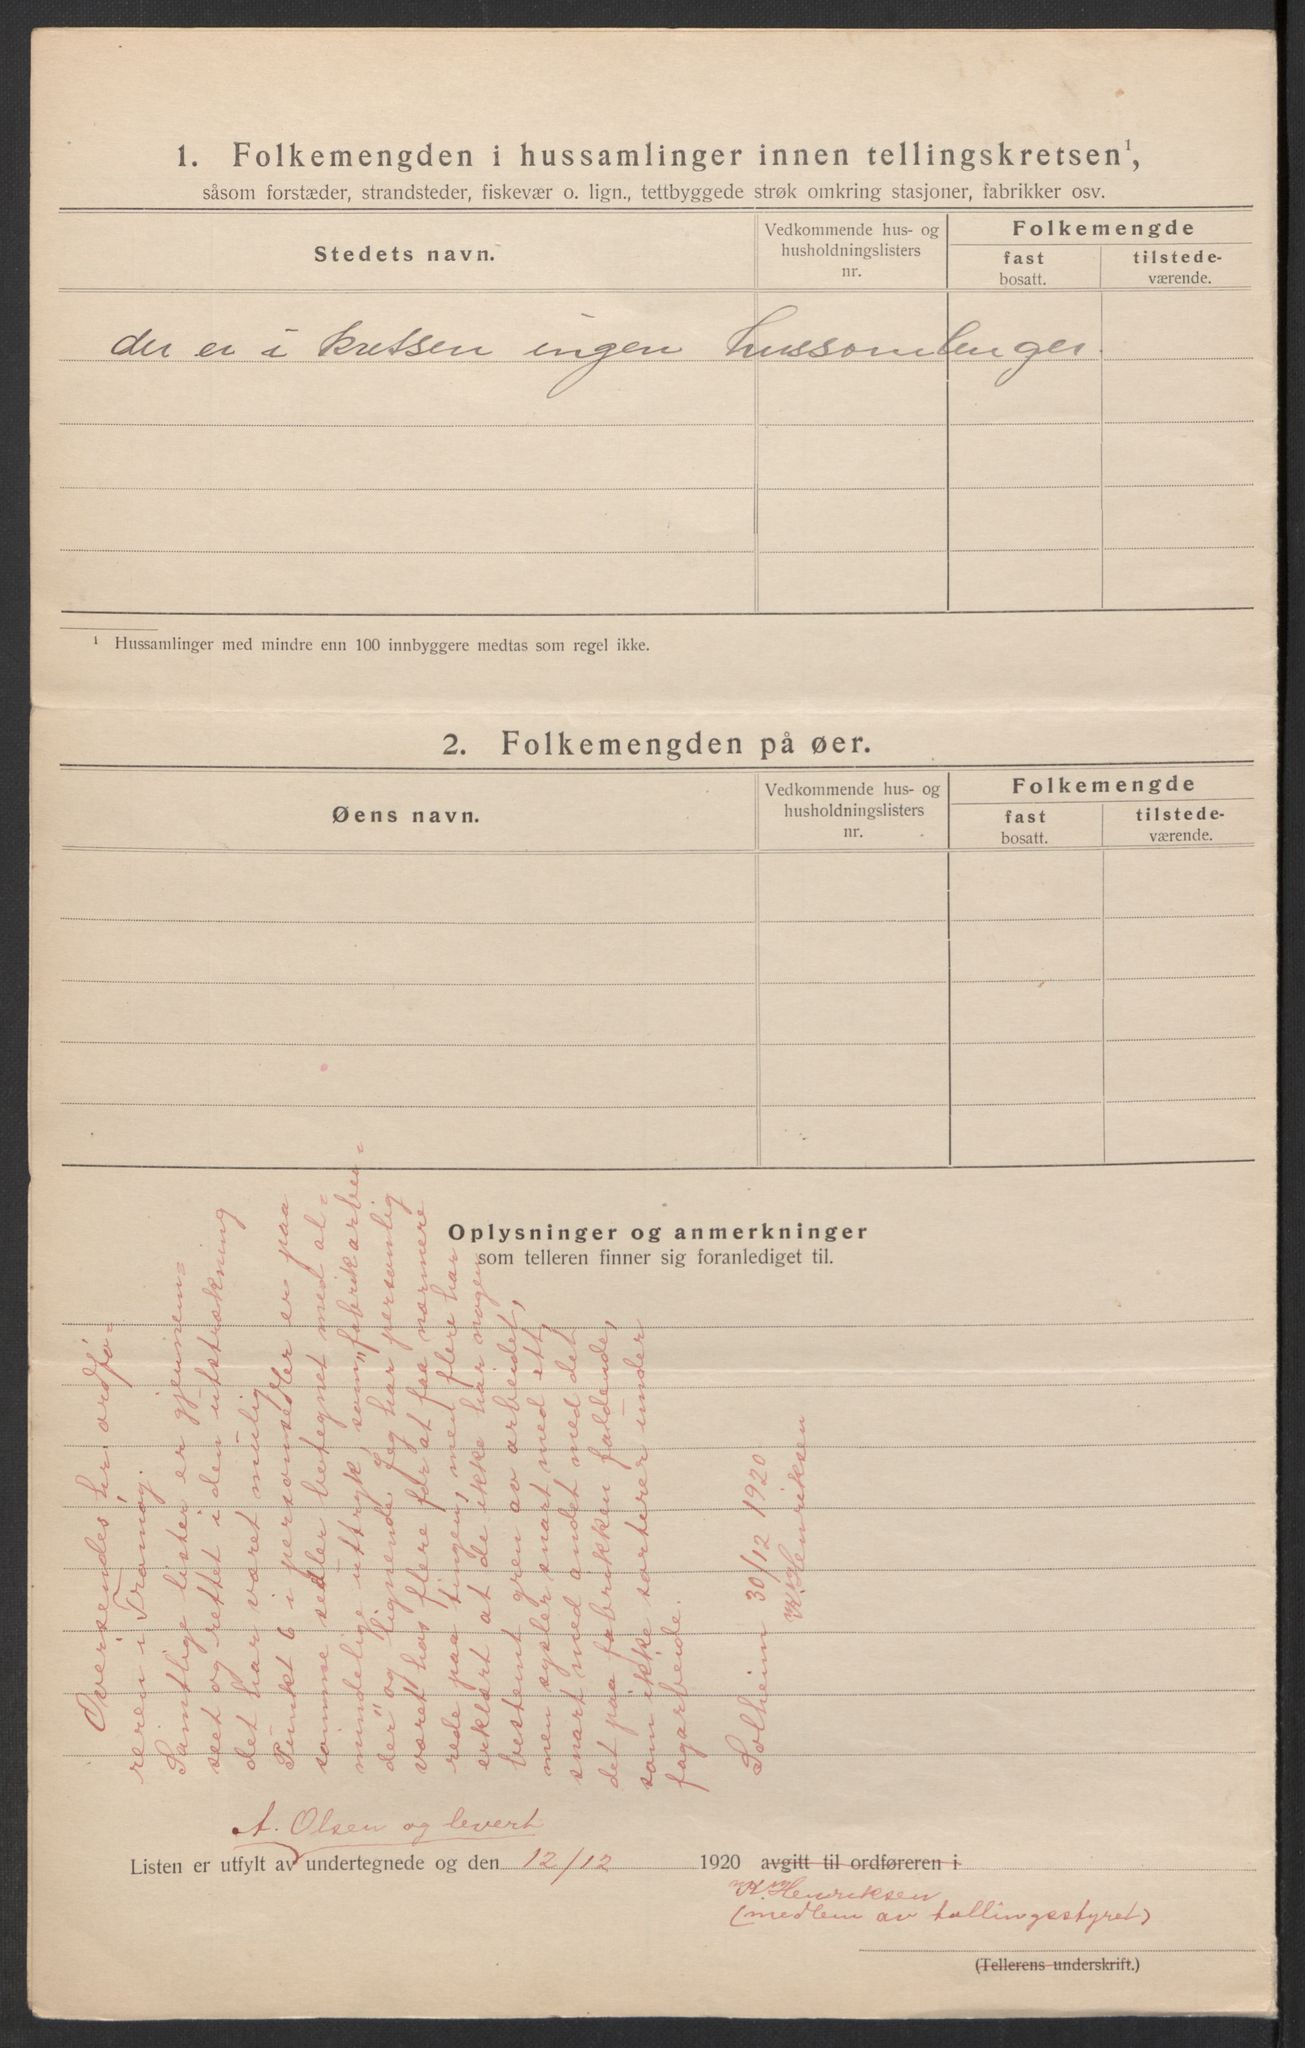 1. Folkemengden i hussamlinger innen tellingskretsen¹,
såsom forstæder, strandsteder, fiskevær o. lign., tettbyggede strøk omkring stasjoner, fabrikker osv.
Stedets navn.
Vedkommende hus- og
husholdningslisters
nr.
Folkemengde
fast
bosatt.
tilstede-
værende.
der er i kretsen ingen hussamlenger.
¹ Hussamlinger med mindre enn 100 innbyggere medtas som regel ikke.
2. Folkemengden på øer.
Øens navn.
Vedkommende hus- og
husholdningslisters
nr.
Folkemengde
fast
bosatt.
tilstede-
værende.
Oplysninger og anmerkninger
som telleren finner sig foranlediget til.
Oversendes hr. ordfø-
reren i Tromøy.
Samtlige lister er gjennem-
set og rettet i den utstrækning
det har været mulig.
Punkt 6 i personsedler er paa
somme sedler betegnet med al-
mindelige uttryk som "fabrikarbei-
der" og lignende. Jeg har personlig
været hos flere for at faa nærmere
rede paa tingen, men flere har
erklært at de ikke har nogen
bestemt gren av arbeidet,
men sysler snart med ett,
snart med andet med det
det paa fabrikken faldende,
som ikke sorterer under
fagarbeide.
Solheim 30/12 1920
K. Henriksen
A. Olsen og levert
Listen er utfylt av undertegnede og den 12/12 1920 avgitt til ordføreren i
K. Henriksen
(medlem av tællingsstyret)
(Tellerens underskrift.)